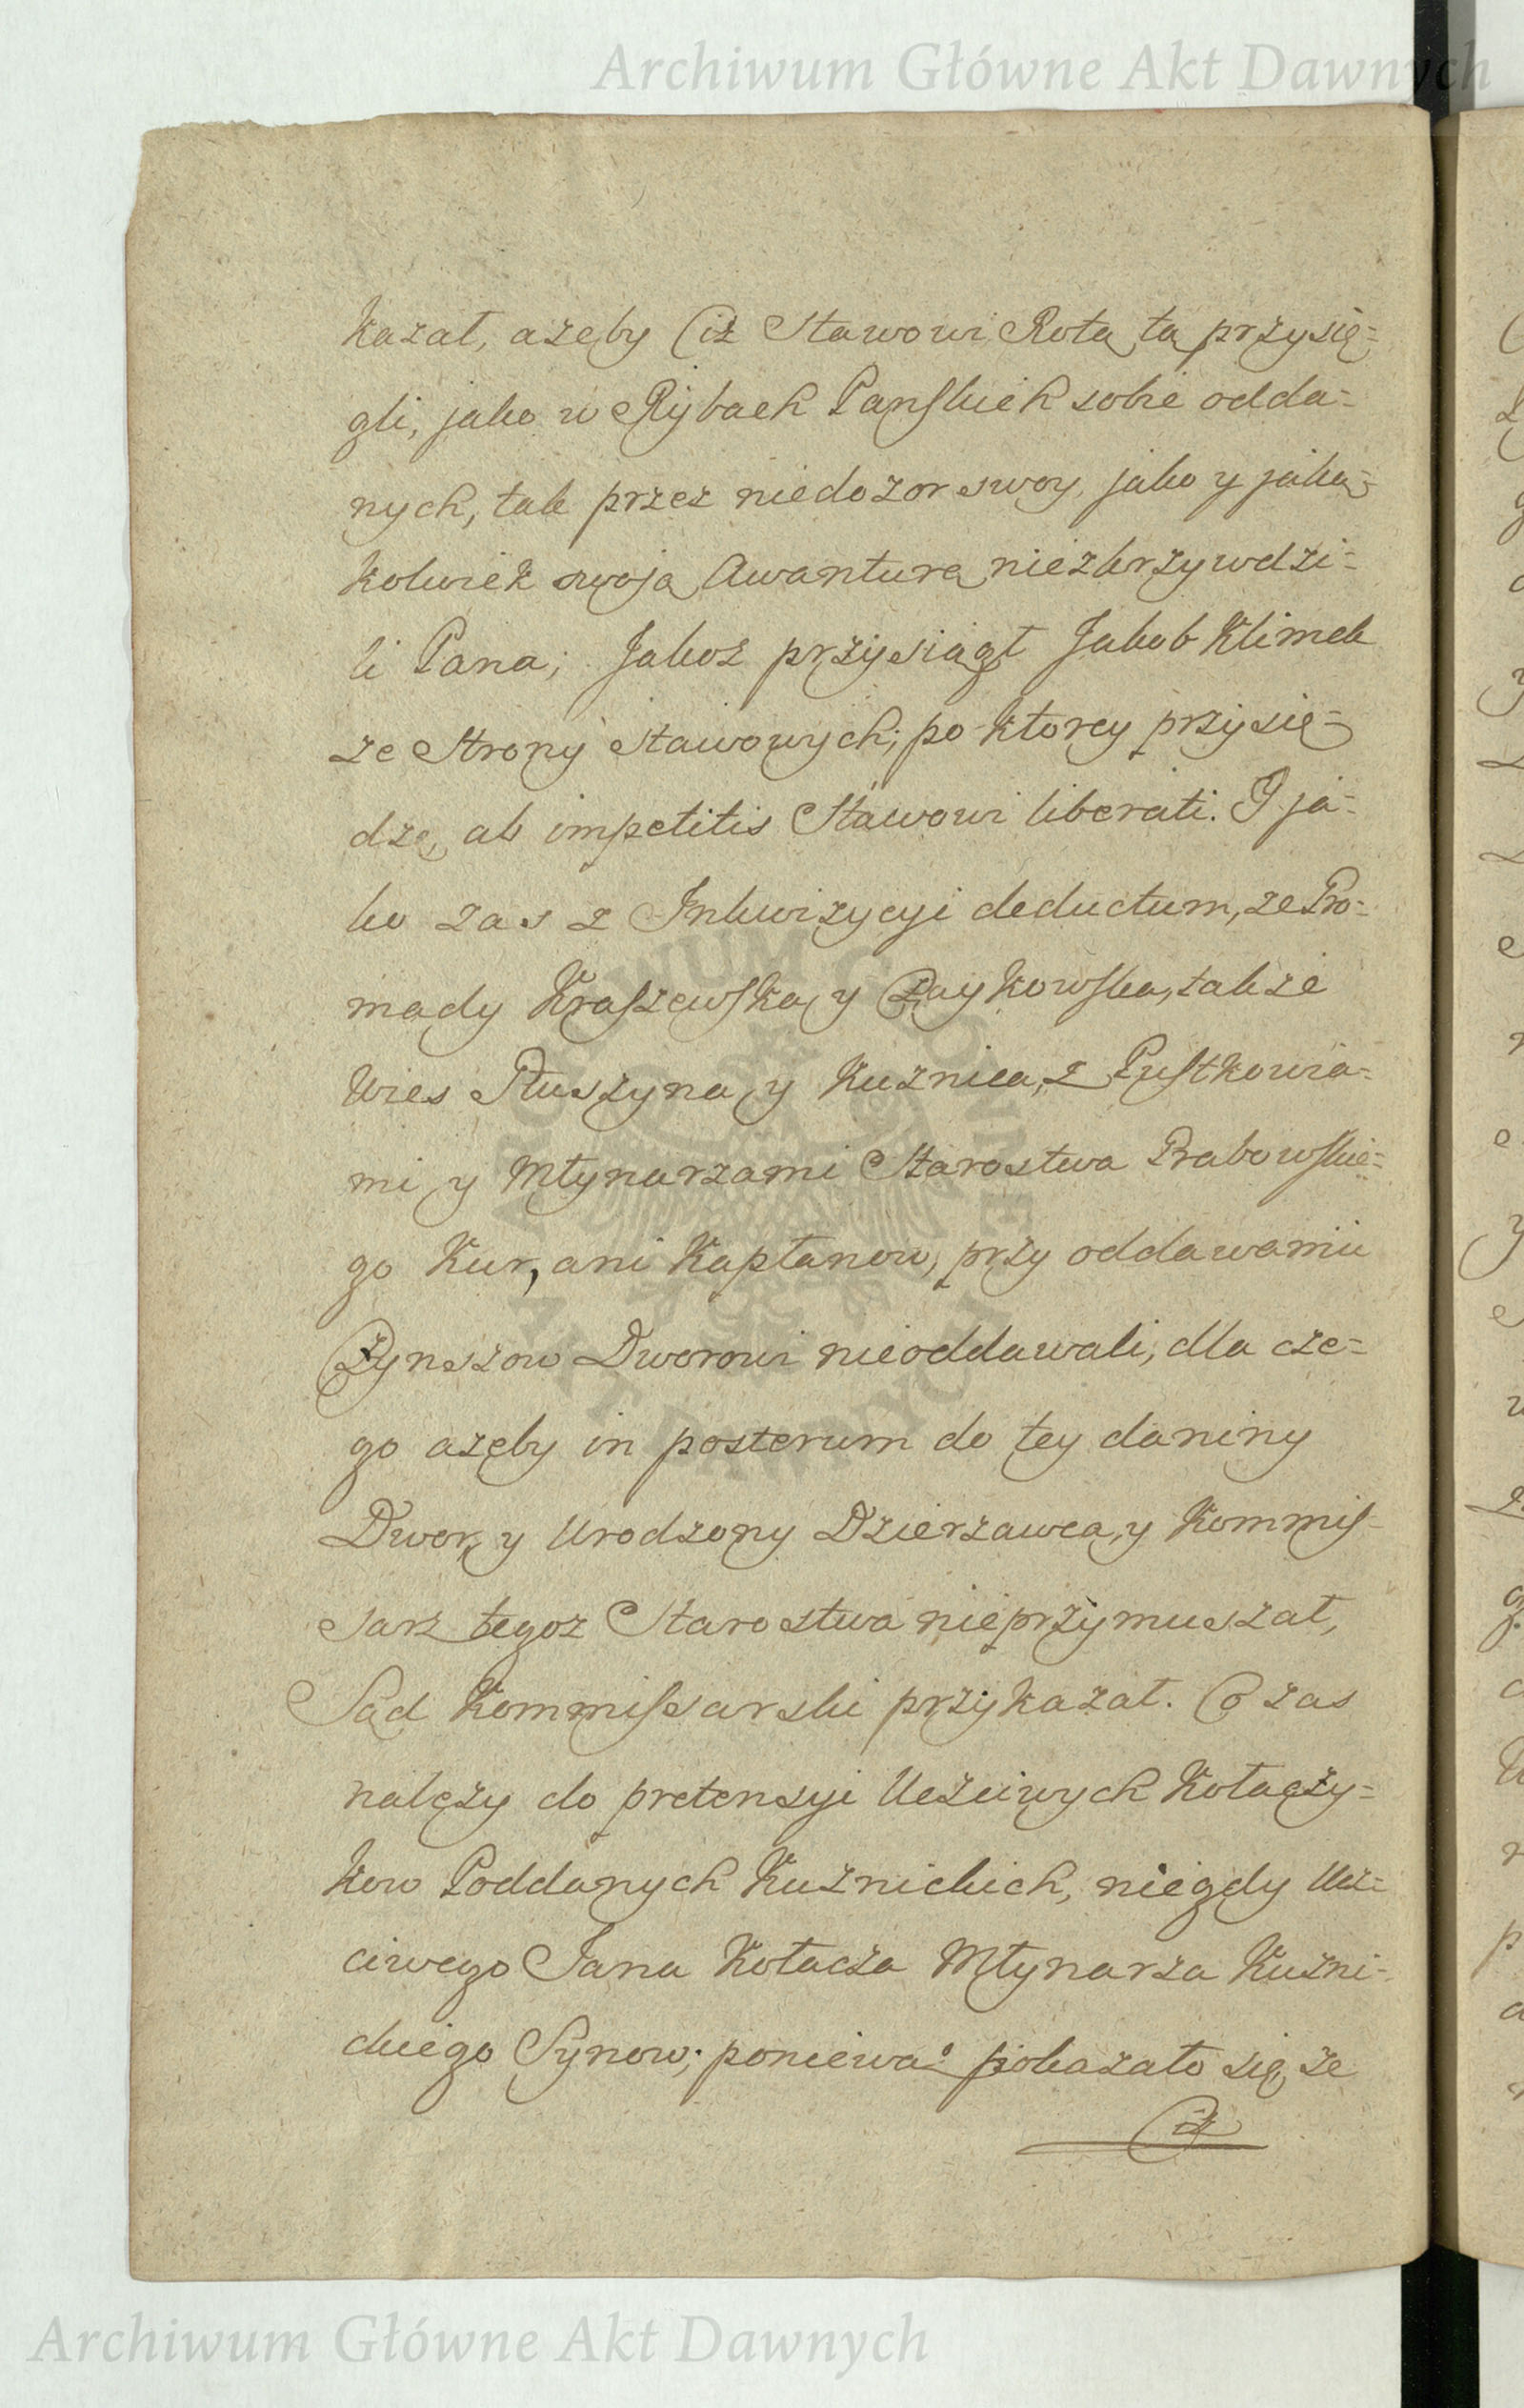 Archiwum Główne Akt Dawnych
kazał, ażeby Ciż Stawowi Rotą tą przysię=
gli, jako w Rybach Panskich sobie odda=
nych, tak przez niedozor swoy, jako y jaką=
kolwiek swoją Awanturą niezkrzywdzi=
li Pana; Jakoż przysiągł Jakob Klimek
ze Strony Stawowych; po ktorey przysię=
dze, ab impetitis Stawowi liberati. I ja=
ko zas z Inkwizycyi deductum, ze Gro=
mady Kraszewska y Raykowska, także
Wies Ruszyna y Kuznica, z Pustkowia=
mi y Młynarzami Starostwa Grabowskie=
go Kur, ani Kapłanow, przy oddawaniu
Czynszow Dworowi nieoddawali, dla cze=
go azeby in posterum do tey daniny
Dwor, y Urodzony Dzierzawca, y Kommis=
sarz tegoz Starostwa nieprzymuszał,
Sąd Kommissarski przykazał. Co zas
nalęzy do pretensyi Uczciwych Kołaczy=
kow Poddanych Kuznickich, niegdy Ucz=
ciwego Jana Kołacza Młynarza Kuzni=
ckiego Synow; poniewaz pokazało się, ze
Ciz
ARCHIWUM GŁÓWNE AKT DAWNYCH
Archiwum Główne Akt Dawnych